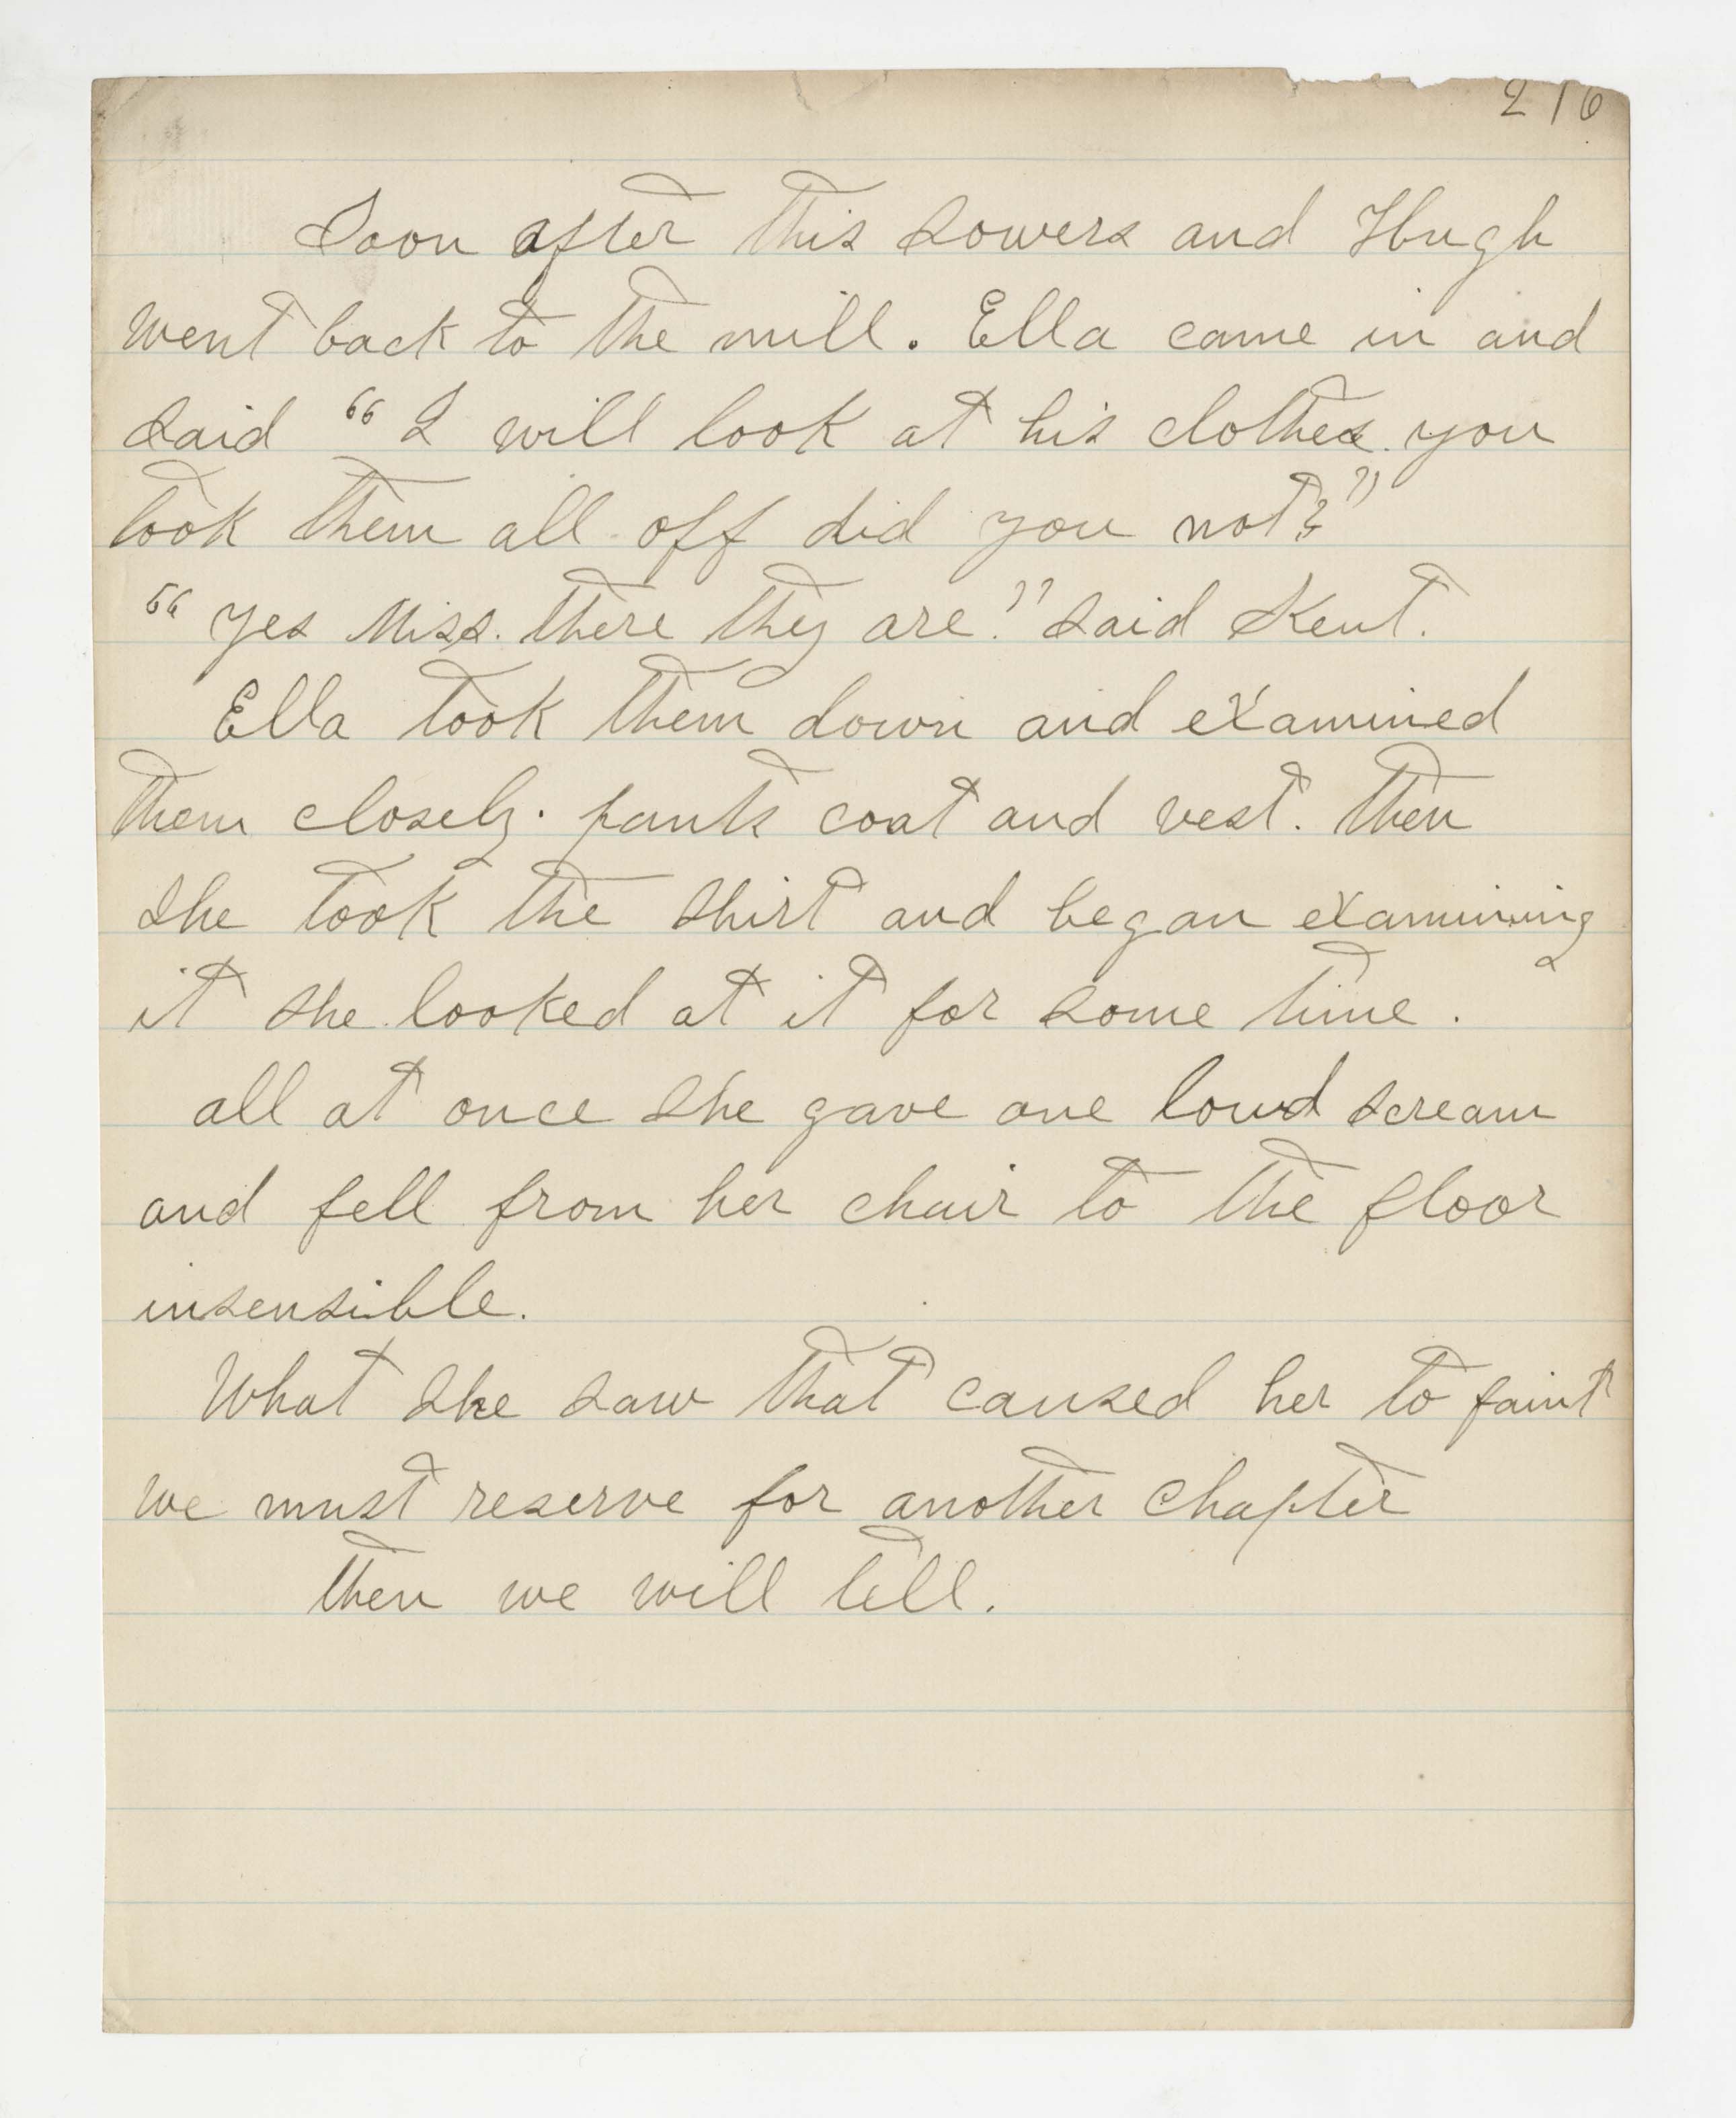 216
Soon after this Sowers and Hugh
went back to the mill. Ella came in and
said "I will look at his clothes. you
took them all off did you not?"
"Yes Miss. there they are." said Kent.
Ella took them down and examined
them closely. pants coat and vest. then
she took the shirt and began examining
it she looked at it for some time.
all at once she gave one loud scream
and fell from her chair to the floor
insensible.
What she saw that caused her to faint
we must reserve for another chapter
then we will tell.